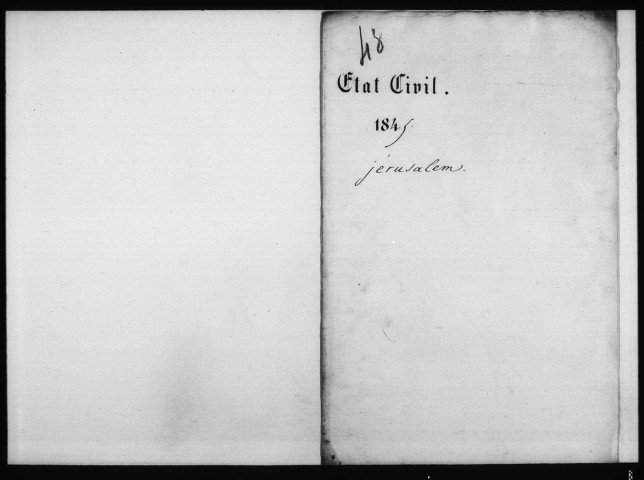 48
Etat Civil.
1845
jérusalem.